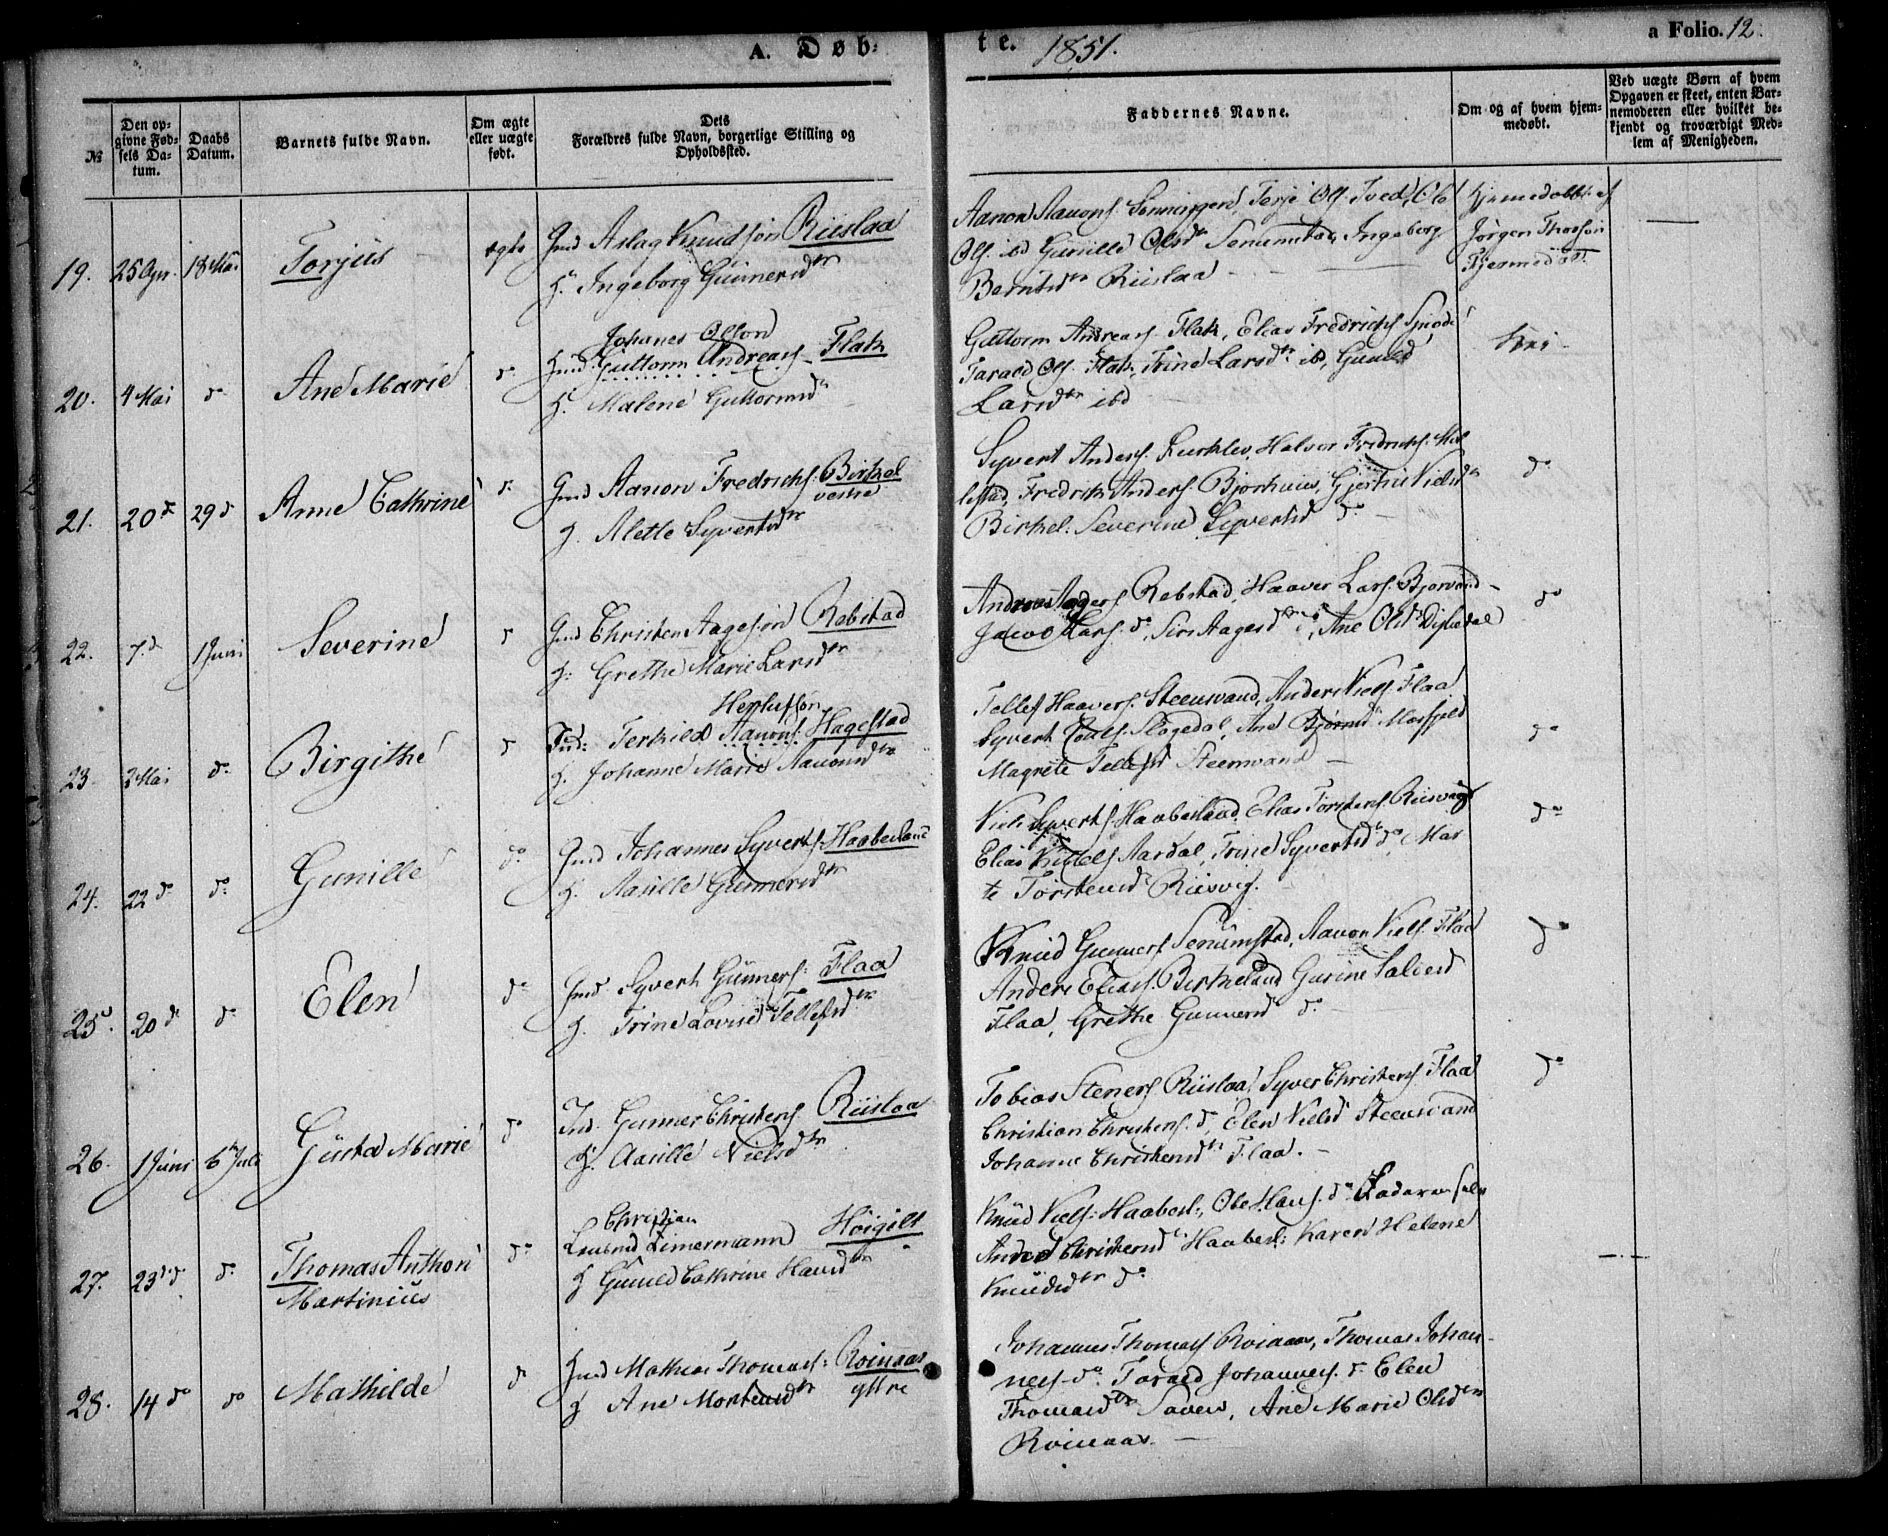 A. Døb-
te. 1851.
a Folio. 12.
№
Den op-
givne Fød-
sels Da-
tum.
Daabs
Datum.
Barnets fulde Navn.
Om ægte
eller uægte
født.
Dets
Forældres fulde Navn, borgerlige Stilling og
Opholdssted.
Faddernes Navne.
Om og af hvem hjem-
medøbt.
Ved uægte Børn af hvem
Opgaven er skeet, enten Bar-
nemoderen eller hvilket be-
kjendt og troværdigt Med-
lem af Menigheden.
19. 25 Apr. 18 Mai Torjüs ægte Gmd Aslag Knudsøn Riislaa
H. Ingeborg Gunnersdtr
Aanon Aanons Terje Ols. Tved, Ole
Ols. ibd Gunille Olsdtr Senumstad, Ingeborg
Berntsdtr Riislaa
Hjemedøbt af
Jørgen Thorsøn
20. 4 Mai do Ane Marie do Johanes Olson
Gmd Guttorm Andreas. Flak
H. Malene Guttormsd
Guttorm Andreas. Flak, Elias Fredrichs
Tarald Ols. Flak, Trine Larsdtr ibd, Guneld
Larsdtr ibd
21. 20 d 29 d Anne Cathrine d Gmd Aanon Fredrichs. Birkel
vestre
H. Alette Syvertsdtr
Syvert Anders. Halvor Fredrichs.
Fredrik Anders. Bjorhuus,
Birkel. Severine Syvertsd do
do
22. 7 d 1 Juni Severine d Gmd Christen Aagesøn Rebstad
H. Grethe Marie Larsdtr
Andreas Aages Rebstad, Haaver Lars. Bjorvand
Jacob Lars. do, Siri Aagesd do, Ane Olsd Disledal
do
23. 2 Mai do Birgithe d Herlufsøn
Ind: Terkild Aanons. Hagestad
H. Johanne Marie Aanonsdtr
Tellef Haavers. Steenwand, Anders Niels. Flaa
Syvert Ane Mosfjeld
Magrete Tellefsd Steenwand
do
24. 22 do do Gunille do Gmd Johannes Syverts Haabesland
H. Aasille Gunnersdtr
Niels Syverts. Haabesland, Elias Torstens
Elias Aardal, Trine Syvertsd do, Mar
te Torstensd
do
25. 20 d d Elen do Gmd Syvert Günners. Flaa
H. Trine Lovise Tellefsdtr
Knud Gunners. Senumstad, Aanon Niels. Flaa
Anders Elias. Birkeland Gurine
Flaa, Grethe Gunnersd do
do
26. 1 Juni 6 Juli Güsta Marie do Ind. Gunner Christens. Riislaa
H. Aasille Nielsdtr
Tobias Steners. Riislaa, Syver Christens. Flaa
Christian Christens. do, Elen Nielsd Steenwand
Johanne Christensdtr Flaa.
do
27. 23 d d Thomas Anthon
Martinius
do Christian
Zimermann Høigilt
H Guneld Cathrine Hansdtr
Knud Niels. Haabesl., Ole Hans. do
Christensd Haabesl: Karen Helene
Knudsdtr do
28. 14 do do Mathilde d Gmd Mathias Thomas. Roinaas
yttre
H Ane Mortensdtr
Johannes Thomas. Roinaas, Thomas Johan-
nes. do. Tarald Johannes. d. Elen
Thomasdtr Ane Marie Olsdtr
Roinaas.